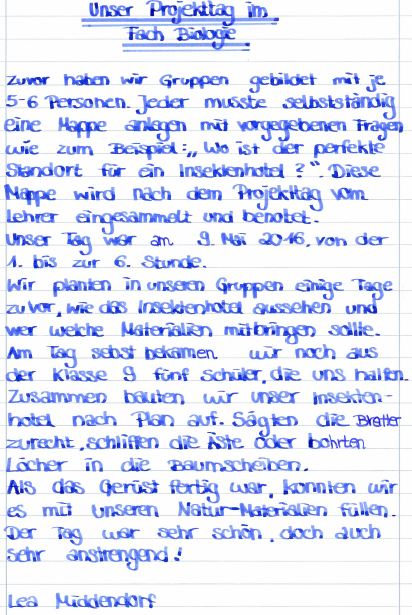 Unser Projekttag im
Fach Biologie
Zuvor haben wir Gruppen gebildet mit je
5-6 Personen. Jeder musste selbstständig
eine Mappe anlegen mit vorgegebenen Fragen
wie zum Beispiel: „Wo ist der perfekte
Standort für ein Insektenhotel?". Diese
Mappe wird nach dem Projekttag vom
Lehrer eingesammelt und benotet.
Unser Tag war am 9. Mai 2016, von der
1. bis zur 6. Stunde.
Wir planten in unseren Gruppen einige Tage
zuvor, wie das Insektenhotel aussehen und
wer welche Materialien mitbringen sollte.
Am Tag selbst bekamen wir noch aus
der Klasse 9 fünf Schüler, die uns halfen.
Zusammen bauten wir unser Insekten-
hotel nach Plan auf. Sägten die Bretter
zurecht, schliffen die Äste oder bohrten
Löcher in die Baumscheiben.
Als das Gerüst fertig war, konnten wir
es mit unseren Natur-Materialien füllen.
Der Tag war sehr schön, doch auch
sehr anstrengend!
Lea Middendorf